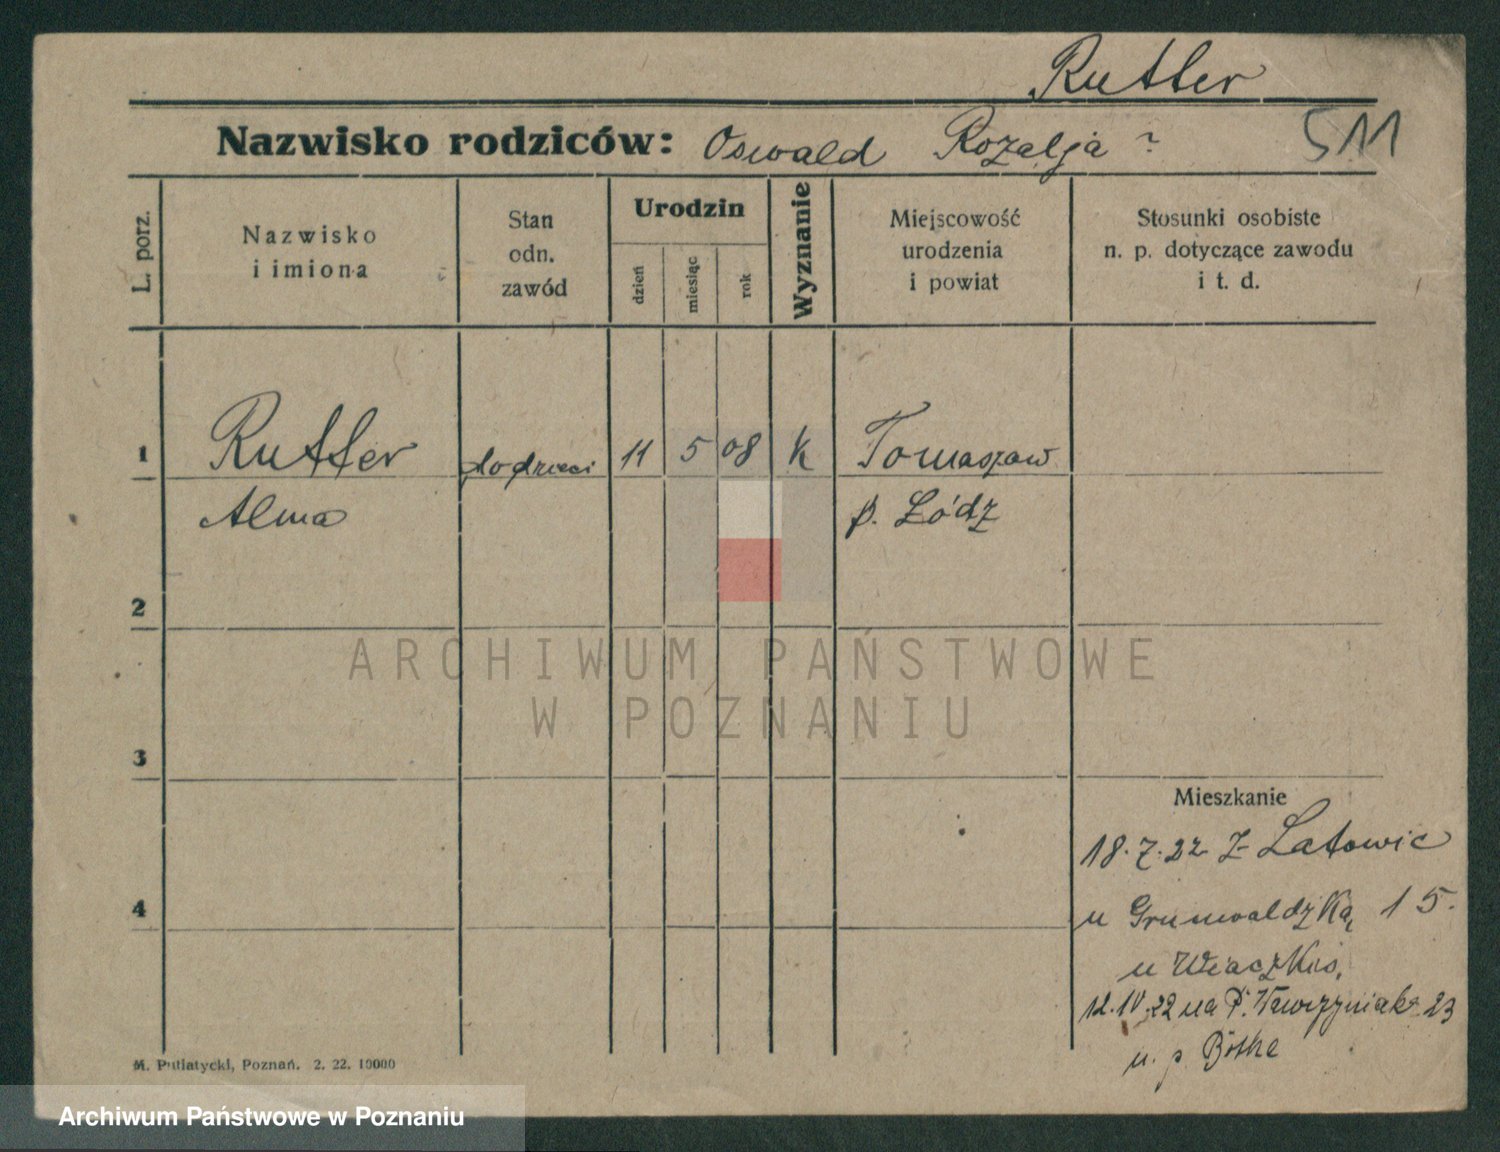 Rutter
Nazwisko rodziców: Oswald Rozalja ? 511
L. porz.
Nazwisko i imiona
Stan odn. zawód
Urodzin
dzień
miesiąc
rok
Wyznanie
Miejscowość urodzenia i powiat
Stosunki osobiste n. p. dotyczące zawodu i t. d.
1 Rutter do dzieci 11 5 08 k Tomaszow
Alma p. Łódz
2
ARCHIWUM PAŃSTWOWE
W POZNANIU
3
Mieszkanie
18.7.22 z Latowic
4
u Grunwaldzką 15.
u
12.IV.22 na P. Wawrzyniaka 23
u. p. Bothe
M. Putiatycki, Poznań. 2. 22. 10000
Archiwum Państwowe w Poznaniu